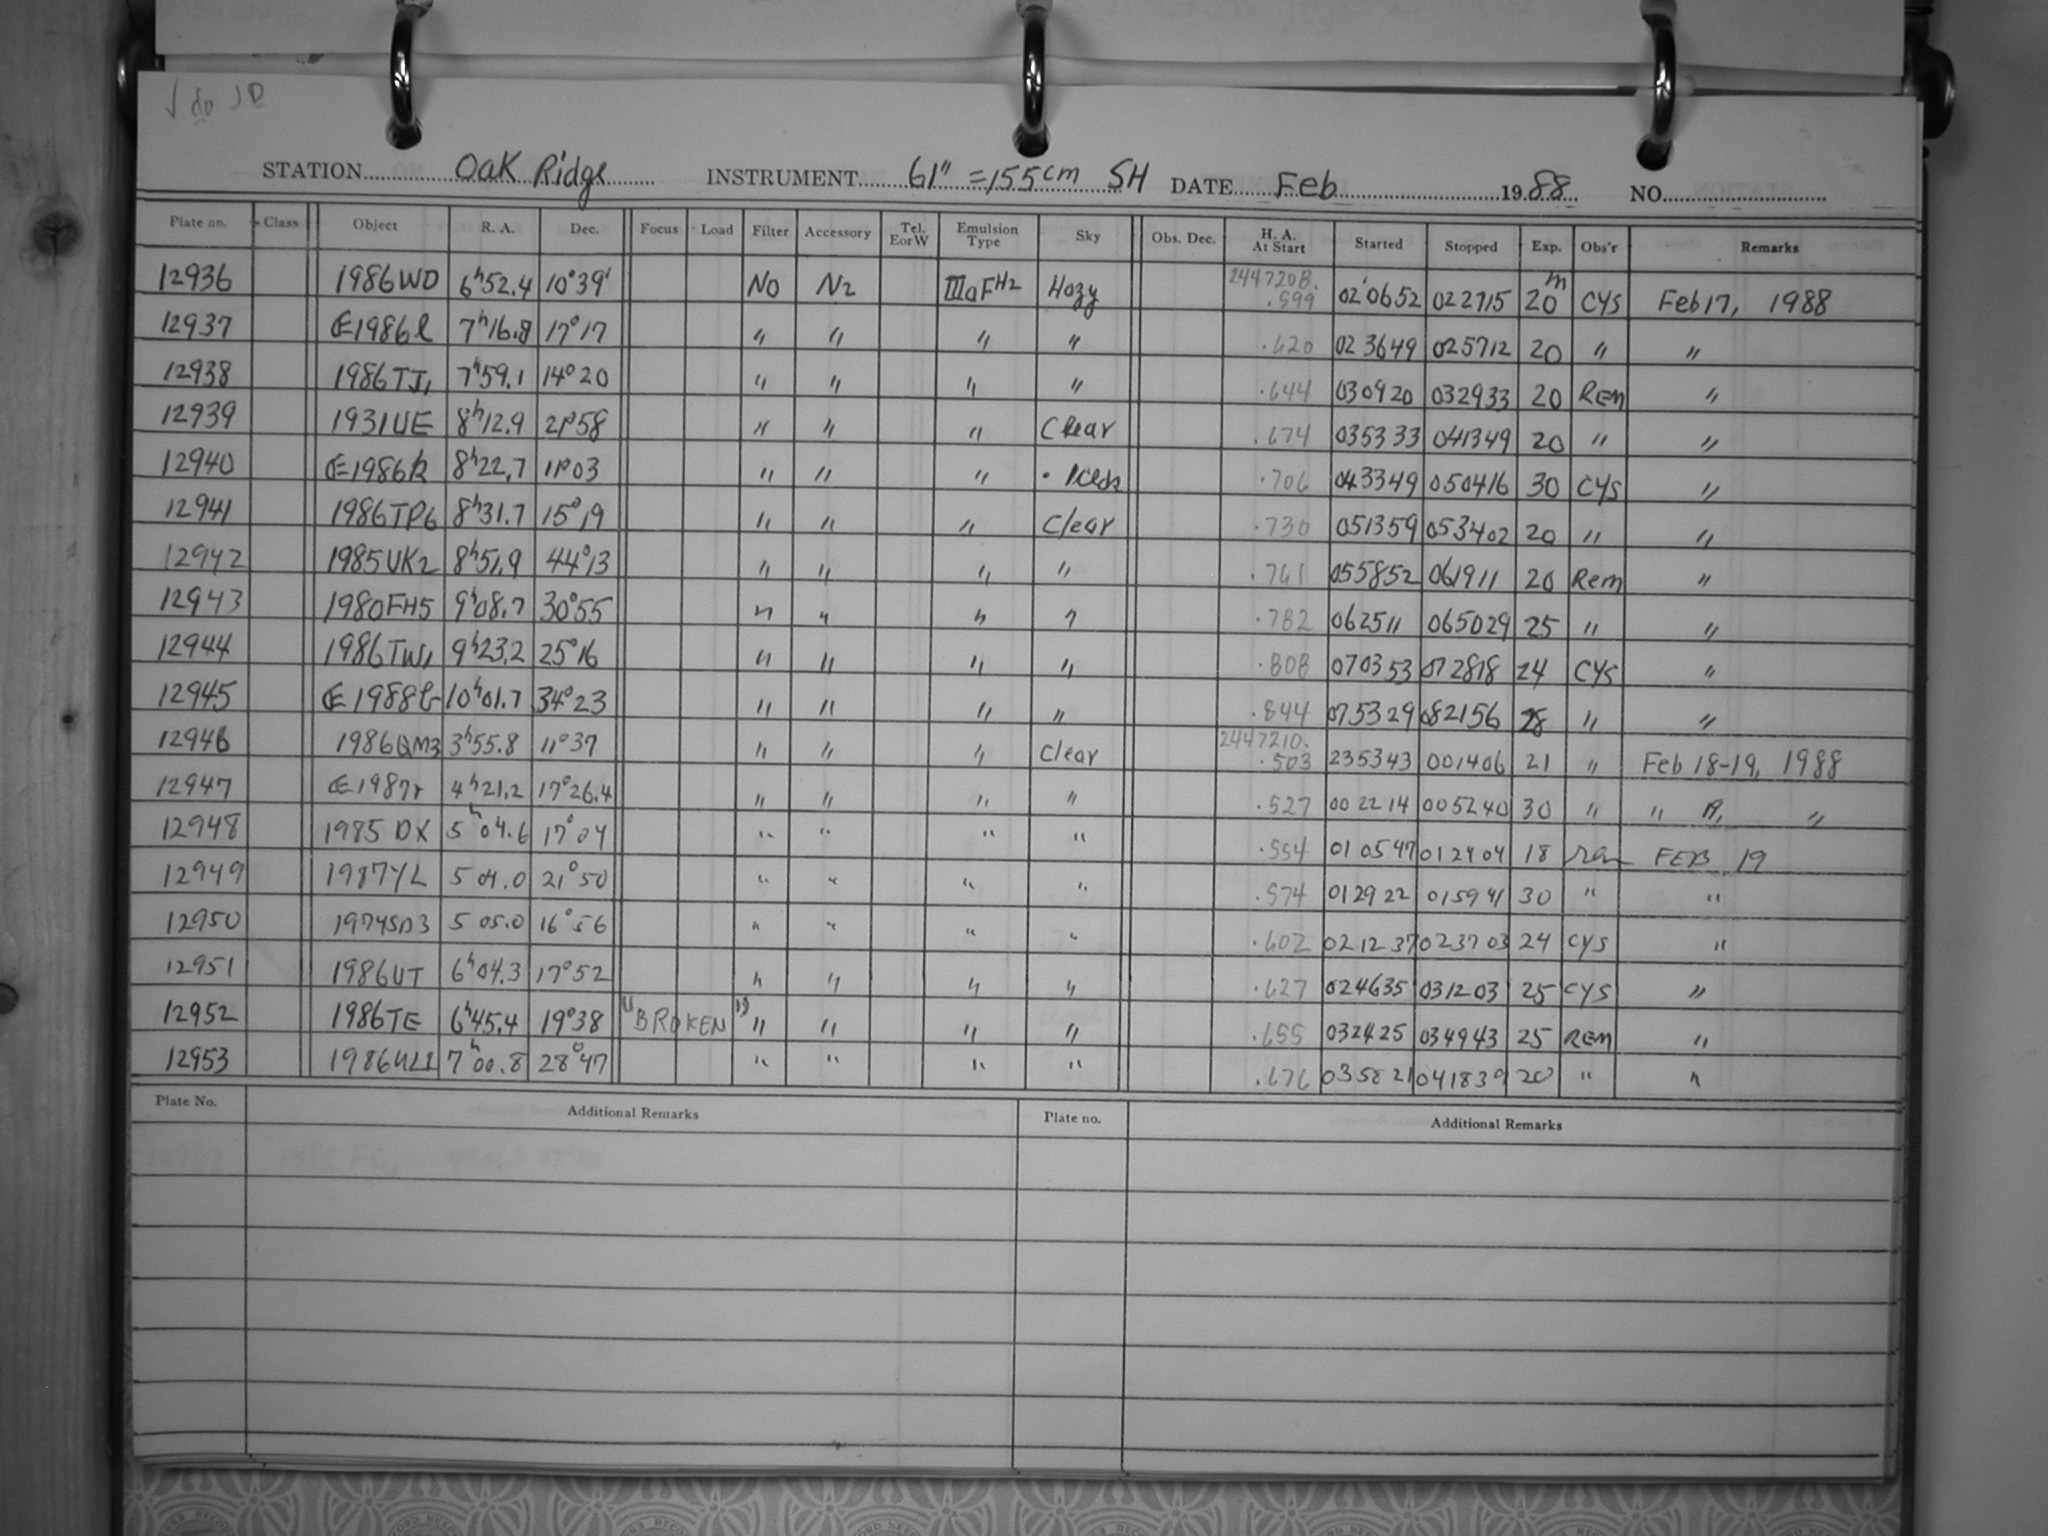 STATION Oak Ridge INSTRUMENT 61" = 155cm SH DATE Feb 1988 NO.
Plate no. Class Object R. A. Dec. Focus Load Filter Accessory Tel. E or W Emulsion Type Sky Obs. Dec. H. A. At Start Started Stopped Exp. Obs'r Remarks
12936 1986WD 6h52.4 10°39' NO N2 IIIaF H2 Hazy 2447208. .599 020652 022715 20m CYS Feb 17, 1988
12937 1986l 7h16.8 17°17 " " " " .620 023649 025712 20 " "
12938 1986TJ1 7h59.1 14°20 " " " " .644 030920 032933 20 Rem "
12939 1931UE 8h12.9 21°58 " " " Clear .674 035333 041349 20 " "
12940 1986k 8h22.7 11°03 " " " .706 043349 050416 30 CYS "
12941 1986TP6 8h31.7 15°19 " " " Clear .730 051359 053402 20 " "
12942 1985UK2 8h51.9 44°13 " " " " .761 055852 061911 20 Rem "
12943 1980FH5 9h08.7 30°55 " " " " .782 062511 065029 25 " "
12944 1986TW1 9h23.2 25°16 " " " " .808 070353 072818 24 CYS "
12945 10h01.7 34°23 " " " " .844 075329 082156 28 " "
12946 1986QM3 3h55.8 11°37 " " " Clear 2447210. .503 235343 001406 21 " Feb 18-19, 1988
12947 1987r 4h21.2 17°26.4 " " " " .527 002214 005240 30 " " 19, "
12948 1985 DX 5h04.6 17°04 " " " " .554 010547 012404 18 rem FEB 19
12949 1987YL 5 04.0 21°50 " " " " .574 012922 015941 30 " "
12950 1974SD3 5 05.0 16°56 " " " " .602 021237 023703 24 CYS "
12951 1986UT 6h04.3 17°52 " " " " .627 024635 031203 25 CYS "
12952 1986TE 6h45.4 19°38 "BROKEN" " " " " .655 032425 034943 25 REM "
12953 7h00.8 28°47 " " " " .676 035821 041839 20 " "
Plate No. Additional Remarks Plate no. Additional Remarks